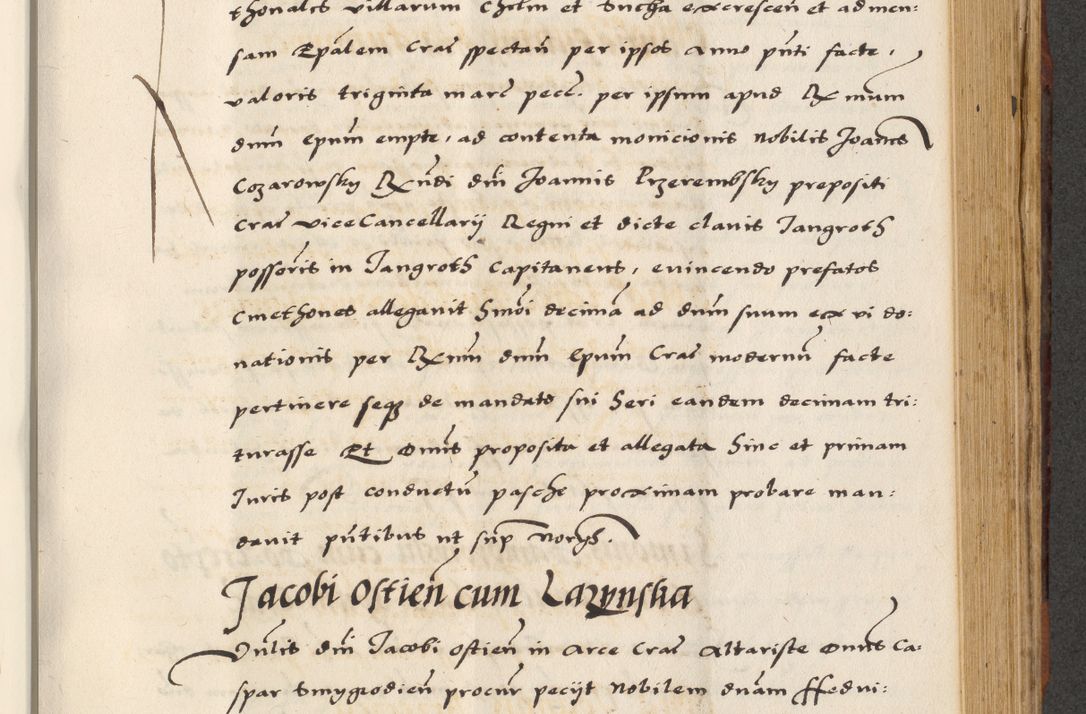 thonales villarum Chelm et Sucha excrescen et ad men-
sam Epalem Crac spectan per ipsos Anno pnti facte,
valoris triginta marc pecc. per ipsum apud Rx mum
dnm Epum empte, ad contenta monicionis nobilis Joannes
Cozarowsky Rxndi dni Joannis Przerembsky prepositi
Crac viceCancellarij Regni et dicte clavis Jangroth
possoris in Jangroth Capitaneus, evincendo prefatos
Cmethones allegavit hmoi decima ad dnm suum ex vi do:
nationis per Rxmum dnm Epum Crac modernu facte
pertinere seqz de mandato sui heri eandem decimam tri:
turasse Et Omnis proposita et allegata hinc et primam
Juris post conductu pasche proximam probare man:
davit pntibus ut sup Norys.
Jacobi Ostien cum Lazynska
Vnlis dni Jacobi Ostien in Arce Crac Altariste Omnes Ca-
spar Smygrodien procur pecijt Nobilem dnam ffedvi: